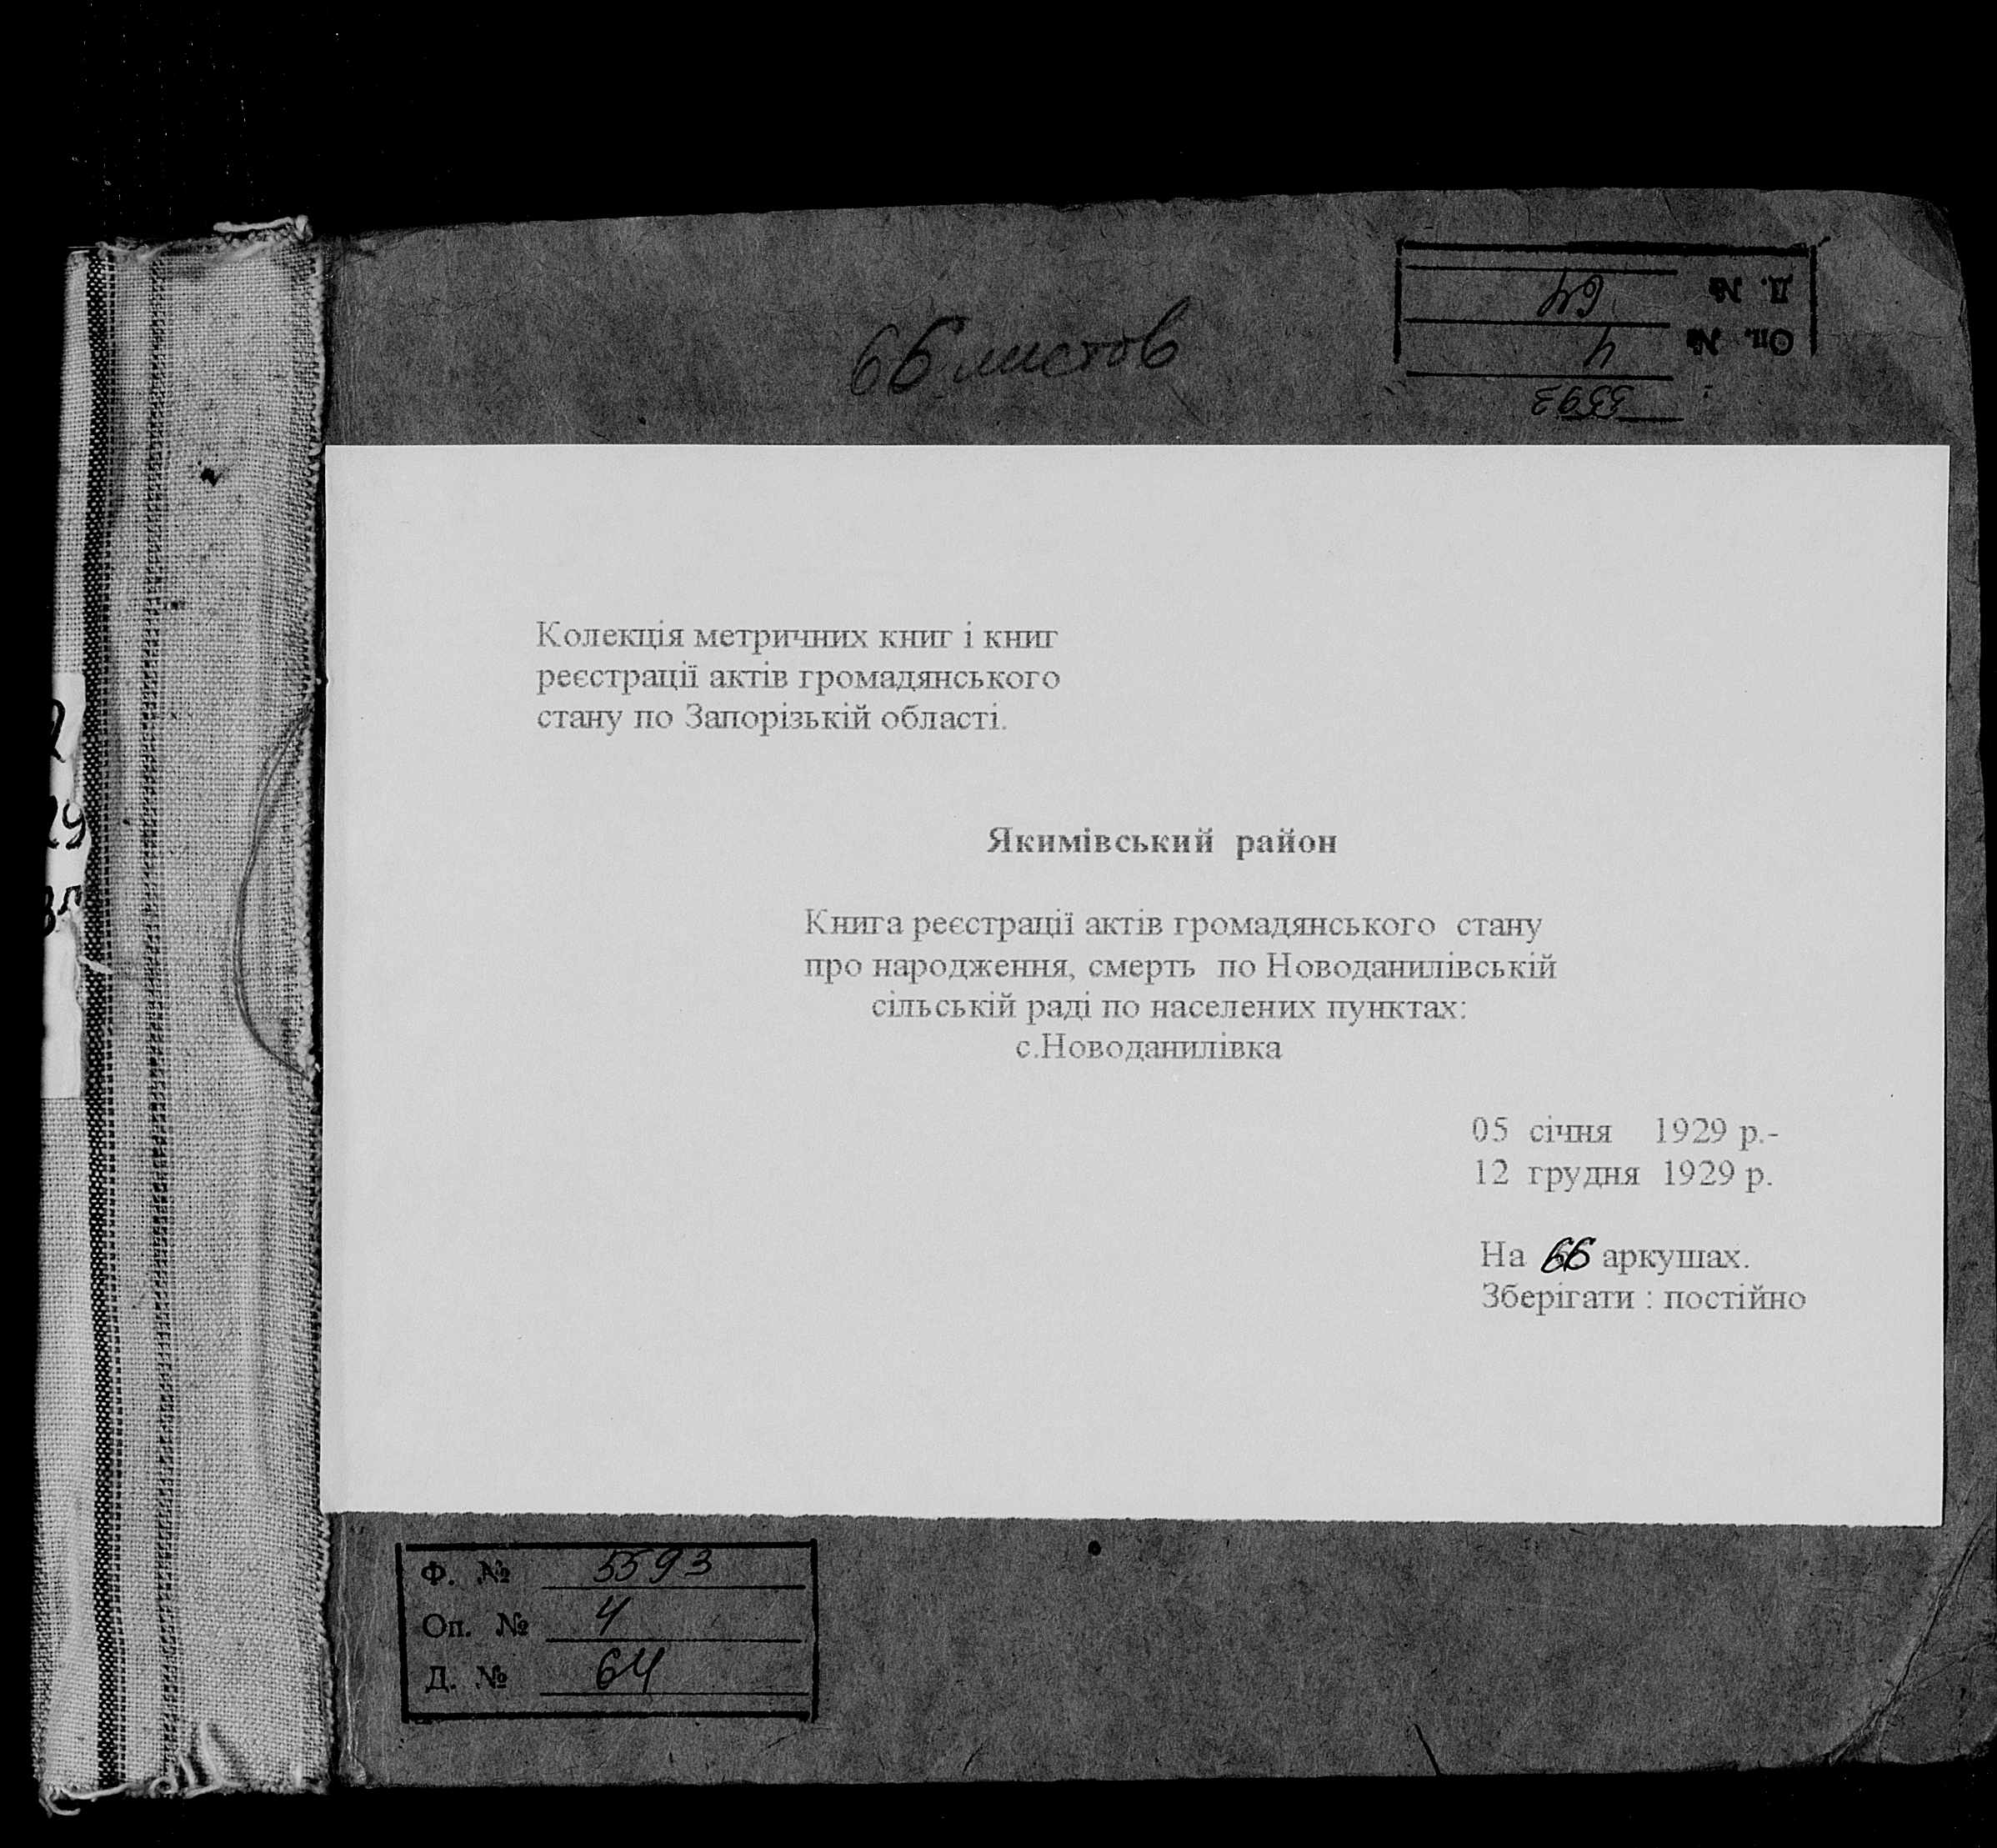 66 листов
Д. № 64
Оп. № 4
5593
Колекція метричних книг і книг
реєстрації актів громадянського
стану по Запорізькій області.
Якимівський район
Книга реєстрації актів громадянського стану
про народження, смерть по Новоданилівській
сільській раді по населених пунктах:
с.Новоданилівка
05 січня 1929 р.-
12 грудня 1929 р.
На 66 аркушах.
Зберігати : постійно
Ф. № 5593
Оп. № 4
Д. № 64